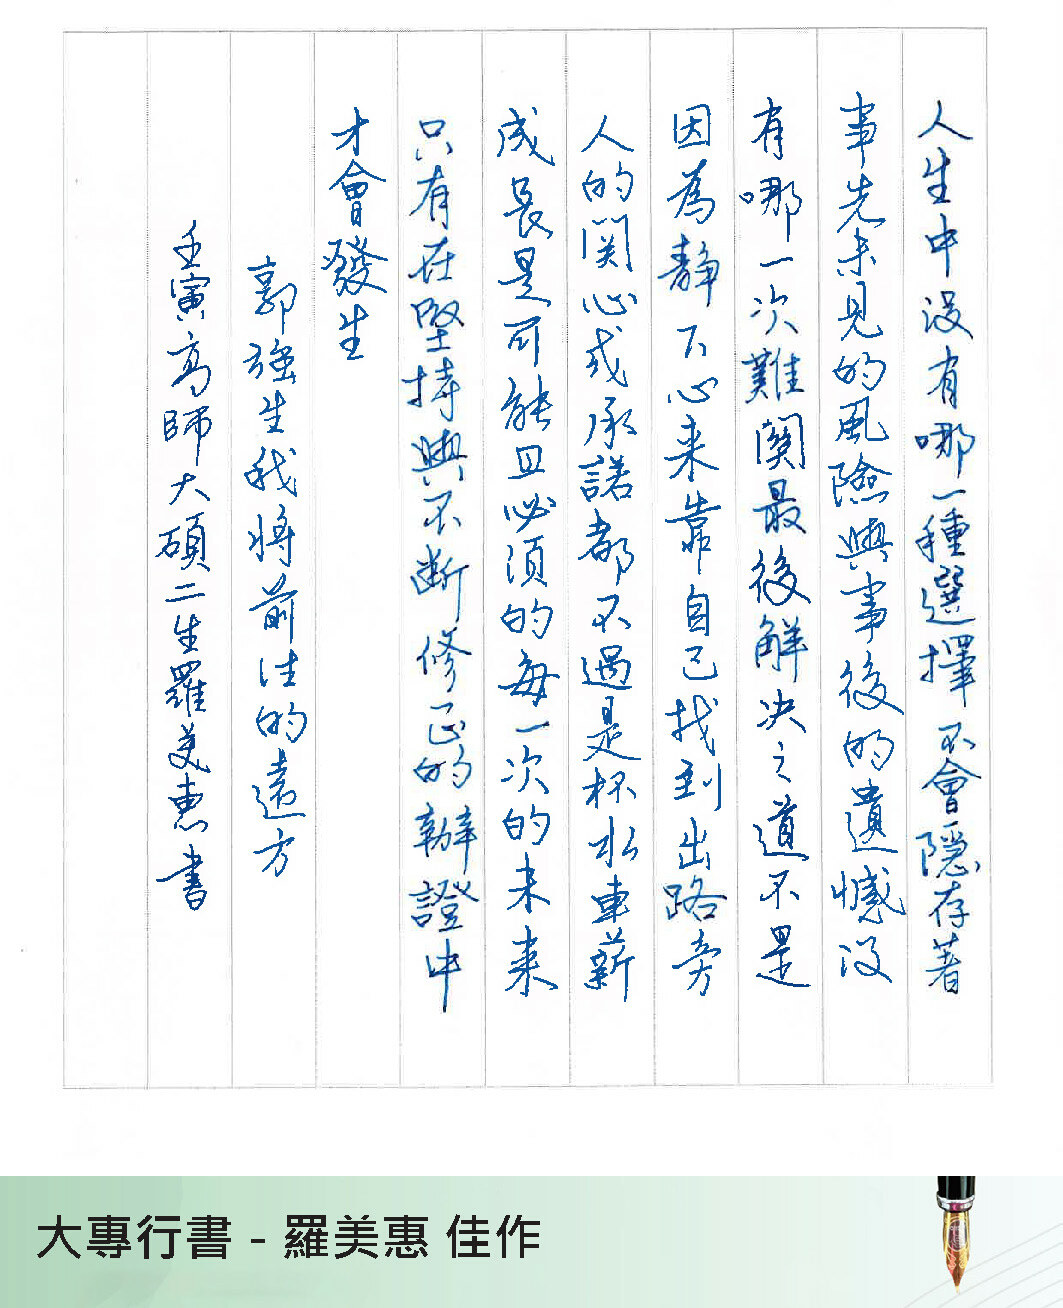 人生中沒有哪一種選擇不會隱存著
事先未見的風險與事後的遺憾沒
有哪一次難關最後解決之道不是
因為靜下心來靠自己找到出路旁
人的関心或承諾都不過是杯水車薪
成長是可能且必須的每一次的未來
只有在堅持與不斷修正的辯證中
才會發生
郭強生我將前往的遠方
壬寅高師大碩二生羅美惠書
大專行書 - 羅美惠 佳作